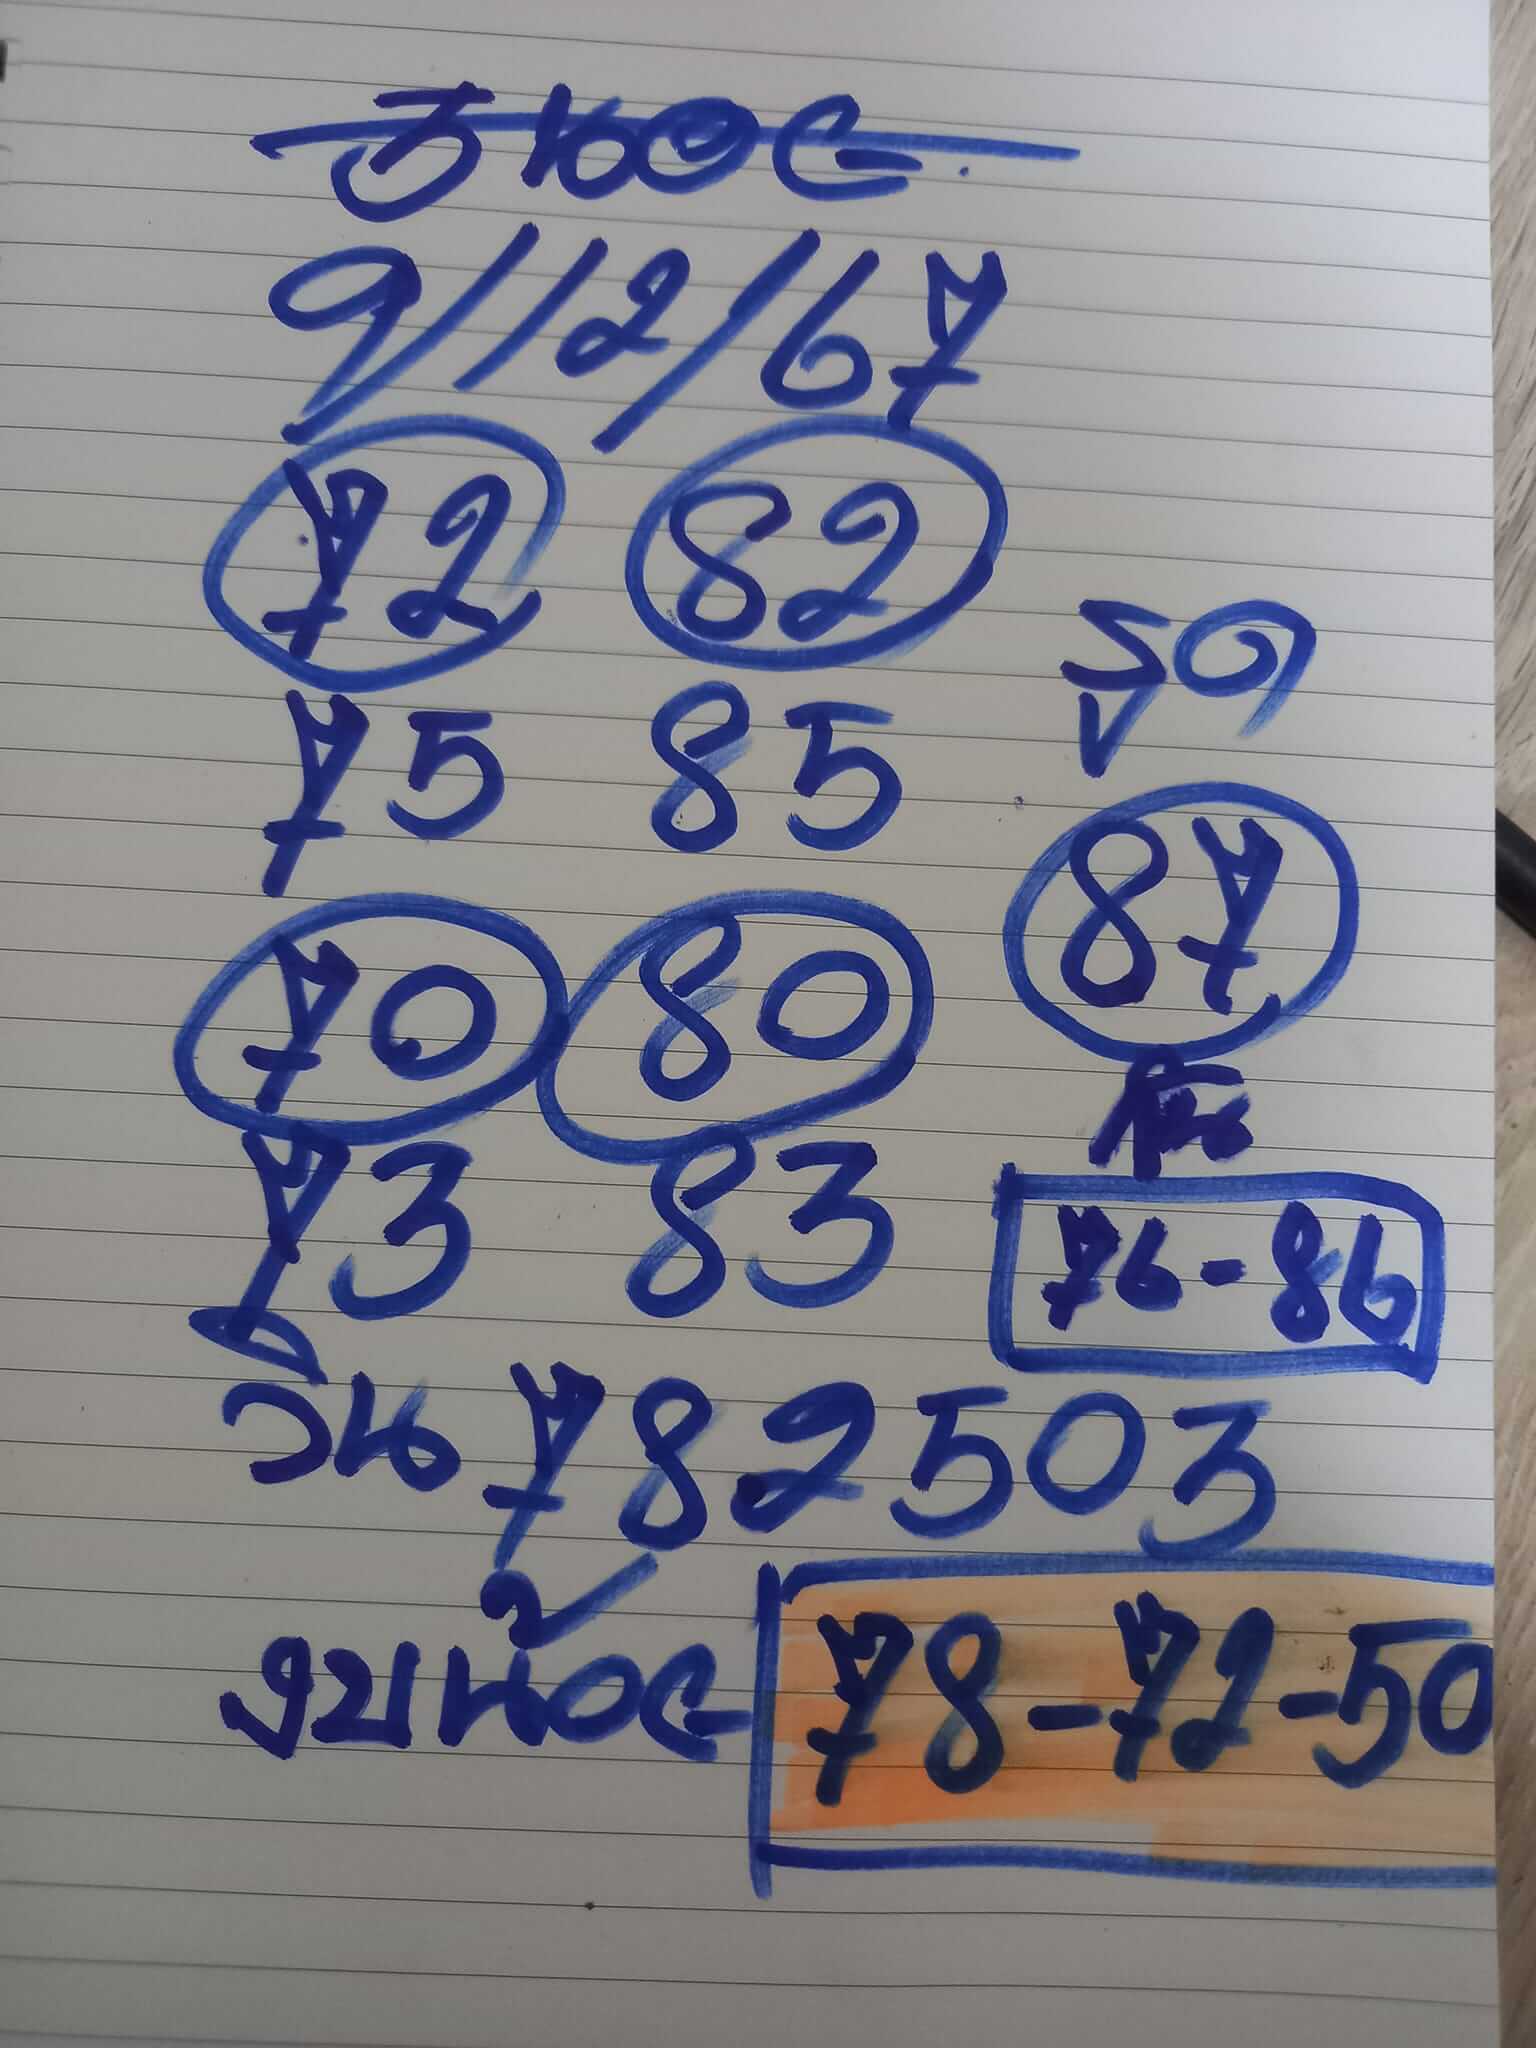 ฮานอย
9/12/67
72 82
75 85
70 80
73 83
รูด
87
กัน
76-86
วิน 782503
งบน้อย 78-72-50